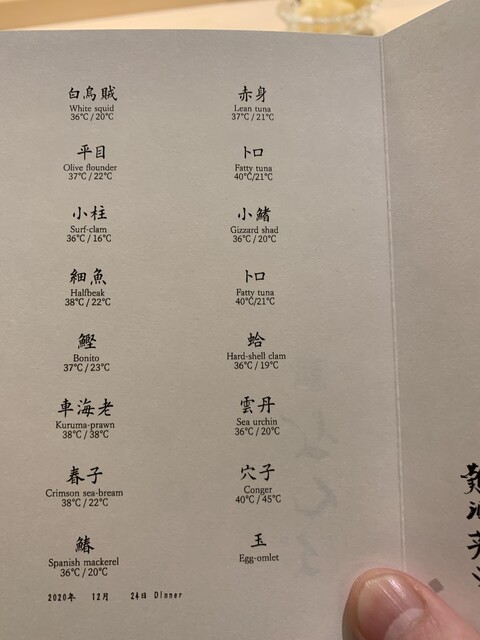 白烏賊
White squid
36℃ / 20℃
平目
Olive flounder
37℃ / 22℃
小柱
Surf-clam
36℃ / 16℃
細魚
Halfbeak
38℃ / 22℃
鰹
Bonito
37℃ / 23℃
車海老
Kuruma-prawn
38℃ / 38℃
春子
Crimson sea-bream
38℃ / 22℃
鰆
Spanish mackerel
36℃ / 20℃
赤身
Lean tuna
37℃ / 21℃
トロ
Fatty tuna
40℃/21℃
小鰭
Gizzard shad
36℃ / 20℃
トロ
Fatty tuna
40℃/21℃
蛤
Hard-shell clam
36℃ / 19℃
雲丹
Sea urchin
36℃ / 20℃
穴子
Conger
40℃ / 45℃
玉
Egg-omlet
2020年 12月 24日 Dinner